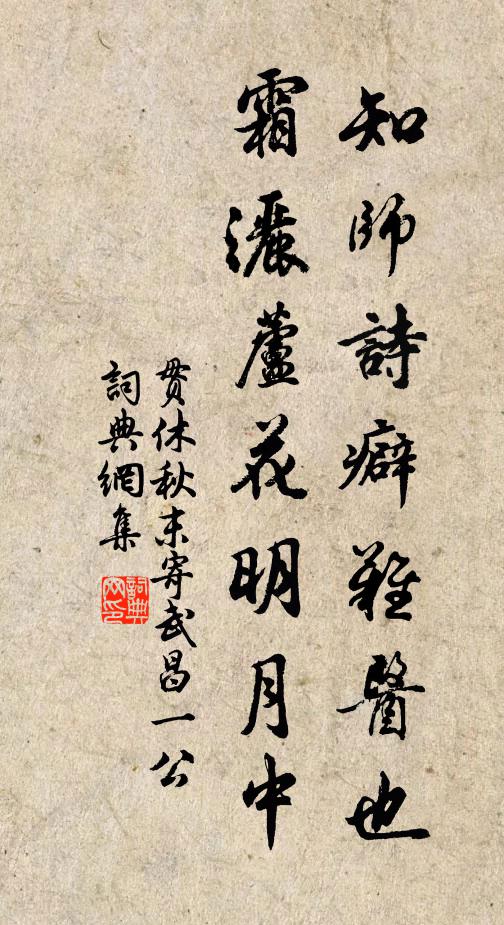 知師詩癖難醫也
霜灑蘆花明月中
貫休秋末寄武昌一公
詞典網集
詞典網印